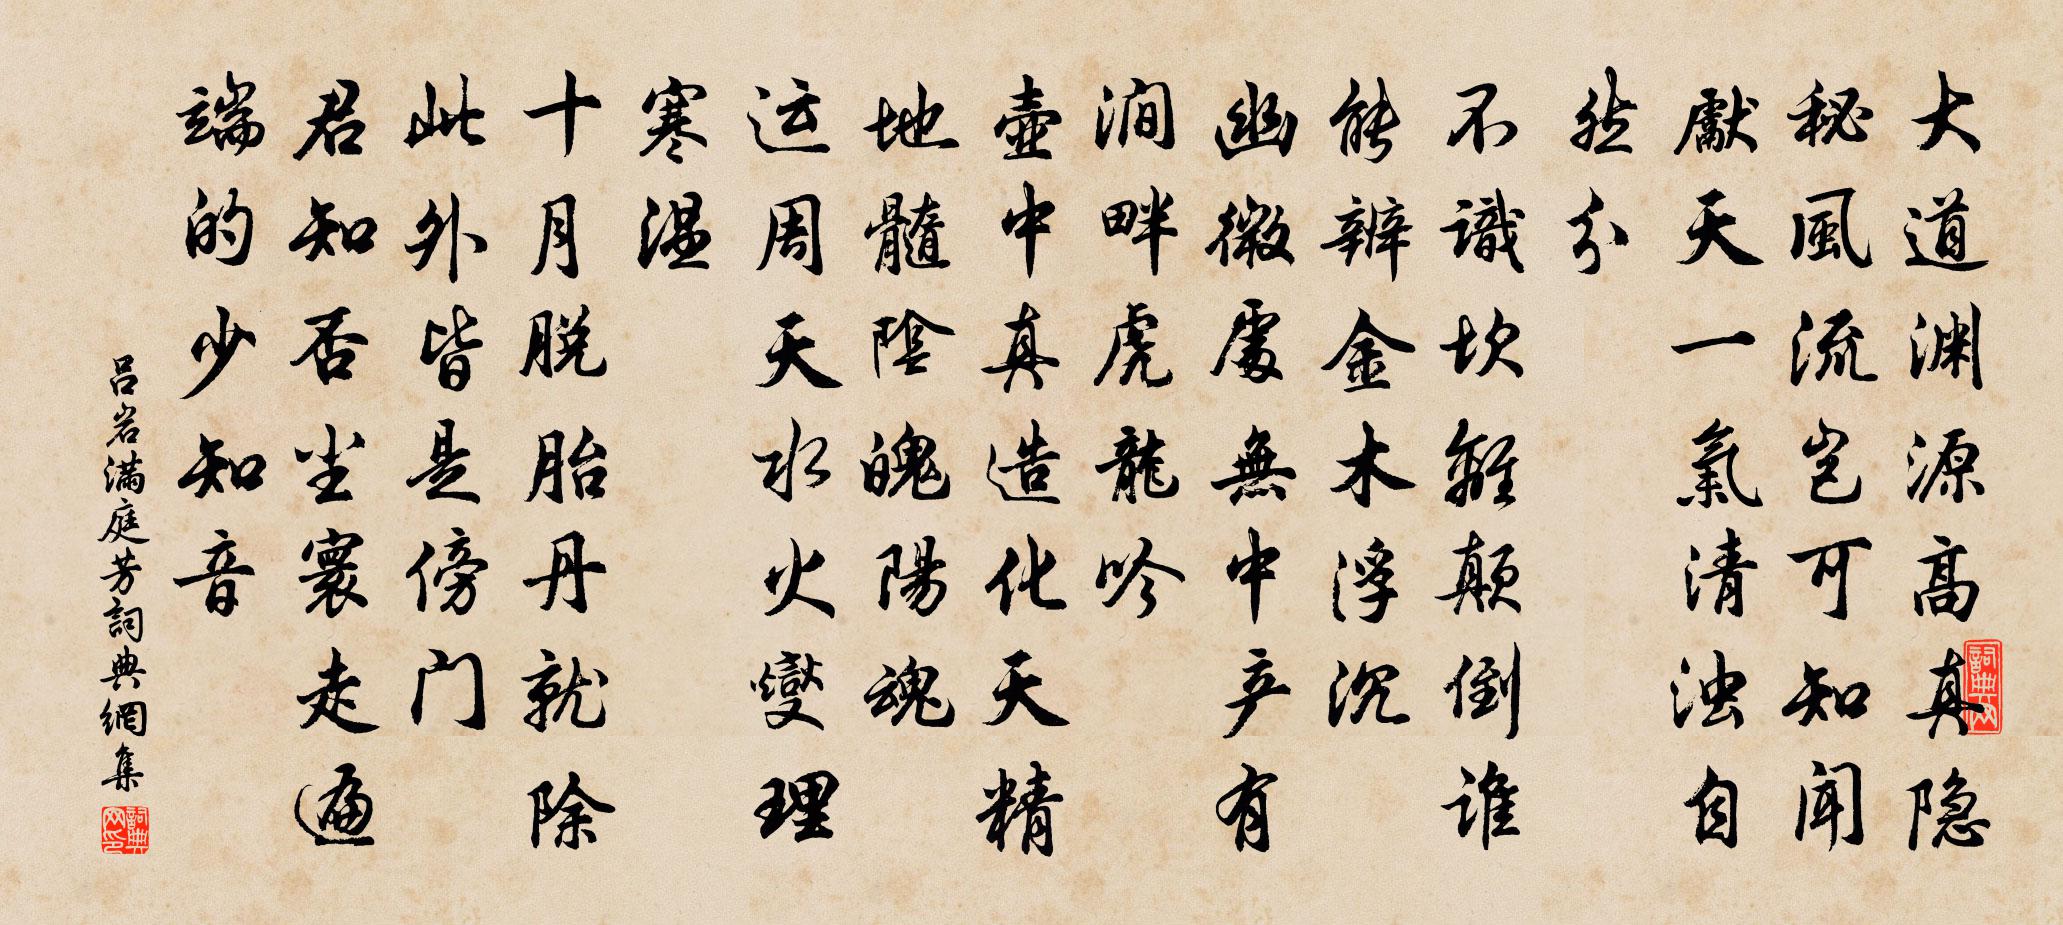 大道渊源高真隐
秘風流岂可知闻
獻天一氣清浊自
然分
不識坎離颠倒谁
能辨金木浮沉
幽微處無中产有
澗畔虎龍吟
壺中真造化天精
地髓陰魄陽魂
运周天水火燮理
寒温
十月脱胎丹就除
此外皆是傍门
君知否尘寰走遍
端的少知音
吕岩满庭芳詞典網集
詞典网
詞典网印